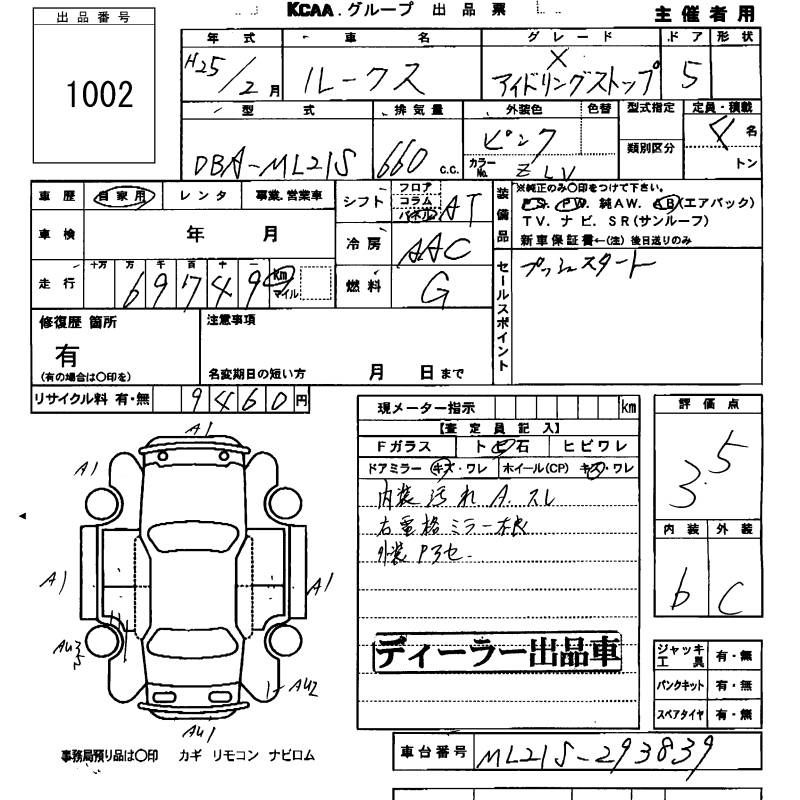 KCAA.グループ 出品票
主催者用
出品番号
1002
年式 車名 グレード ドア 形状
H25/2月 ルークス X アイドリングストップ 5
型式 排気量 外装色 色替 型式指定 定員・積載
DBA-ML21S 660 c.c. ピンク 類別区分 4名
カラーNo. ZLV トン
車歴 自家用 レンタ 事業.営業車
シフト フロア コラム パネル AT
車検 年 月
冷房 AAC
走行 十万 万 千 百 十 一
69749 km マイル
燃料 G
装備品
※純正のみ○印をつけて下さい。
PS. PW. 純AW. AB(エアバック)
TV. ナビ. SR(サンルーフ)
新車保証書←(注)後日送りのみ
セールスポイント
プッシュスタート
修復歴 箇所
有
(有の場合は○印を)
注意事項
名変期日の短い方 月 日まで
リサイクル料 有・無 9460円
現メーター指示 km
【査定員記入】
Fガラス トビ石 ヒビワレ
ドアミラー キズ・ワレ ホイール(CP) キズ・ワレ
内装 汚れ A.スレ
右電格ミラー不良
外装 P3セ.
ディーラー出品車
評価点
3.5
内装 外装
b C
ジャッキ工具 有・無
パンクキット 有・無
スペアタイヤ 有・無
車台番号 ML21S-293839
A1
A1
A1
A1
AU2
AU1
事務局預り品は○印 カギ リモコン ナビロム